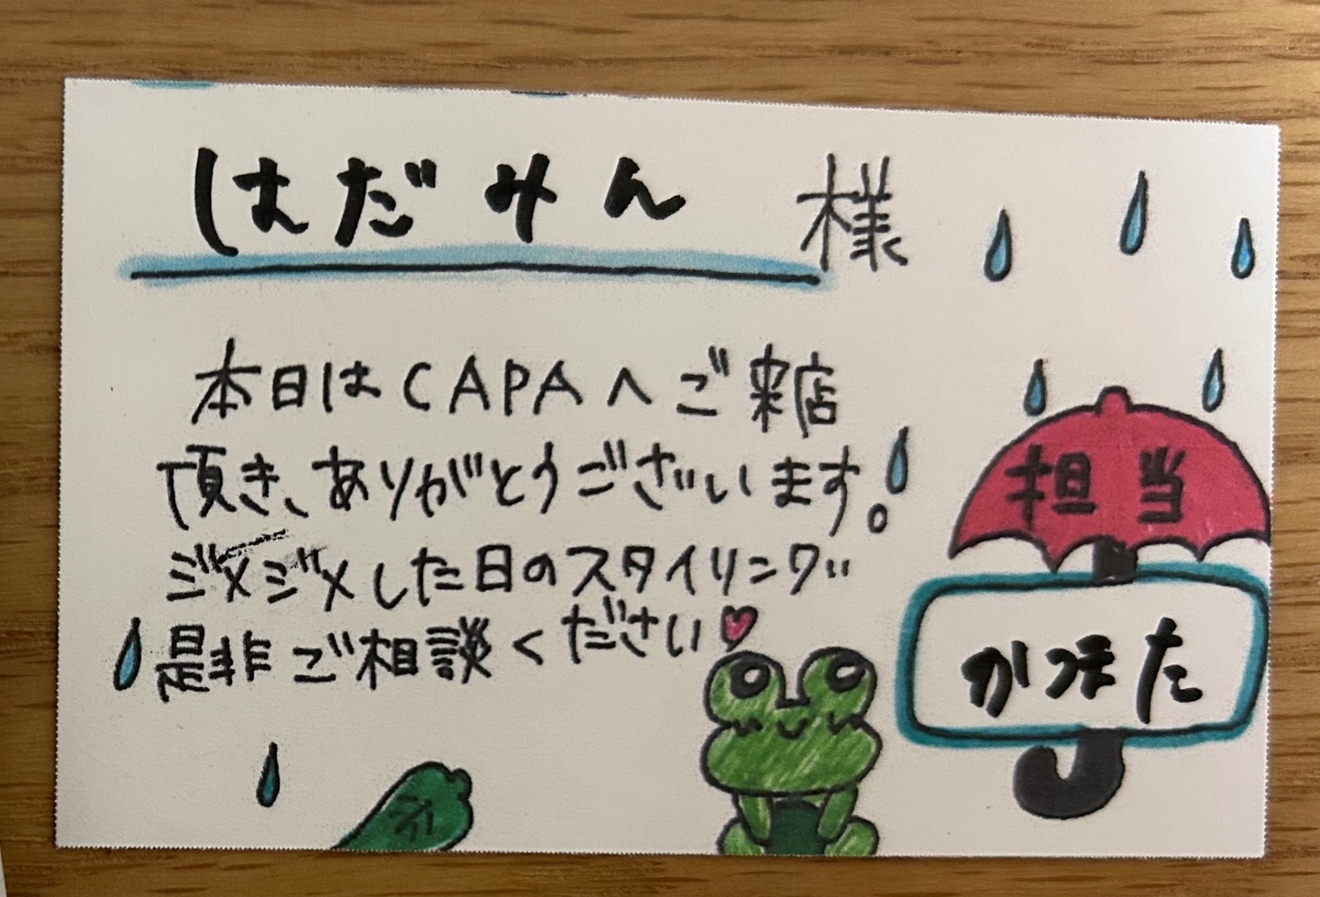 はだみん 様
本日はCAPAへご来店
頂き、ありがとうございます!
ジメジメした日のスタイリング
是非ご相談ください
担当
かつまた